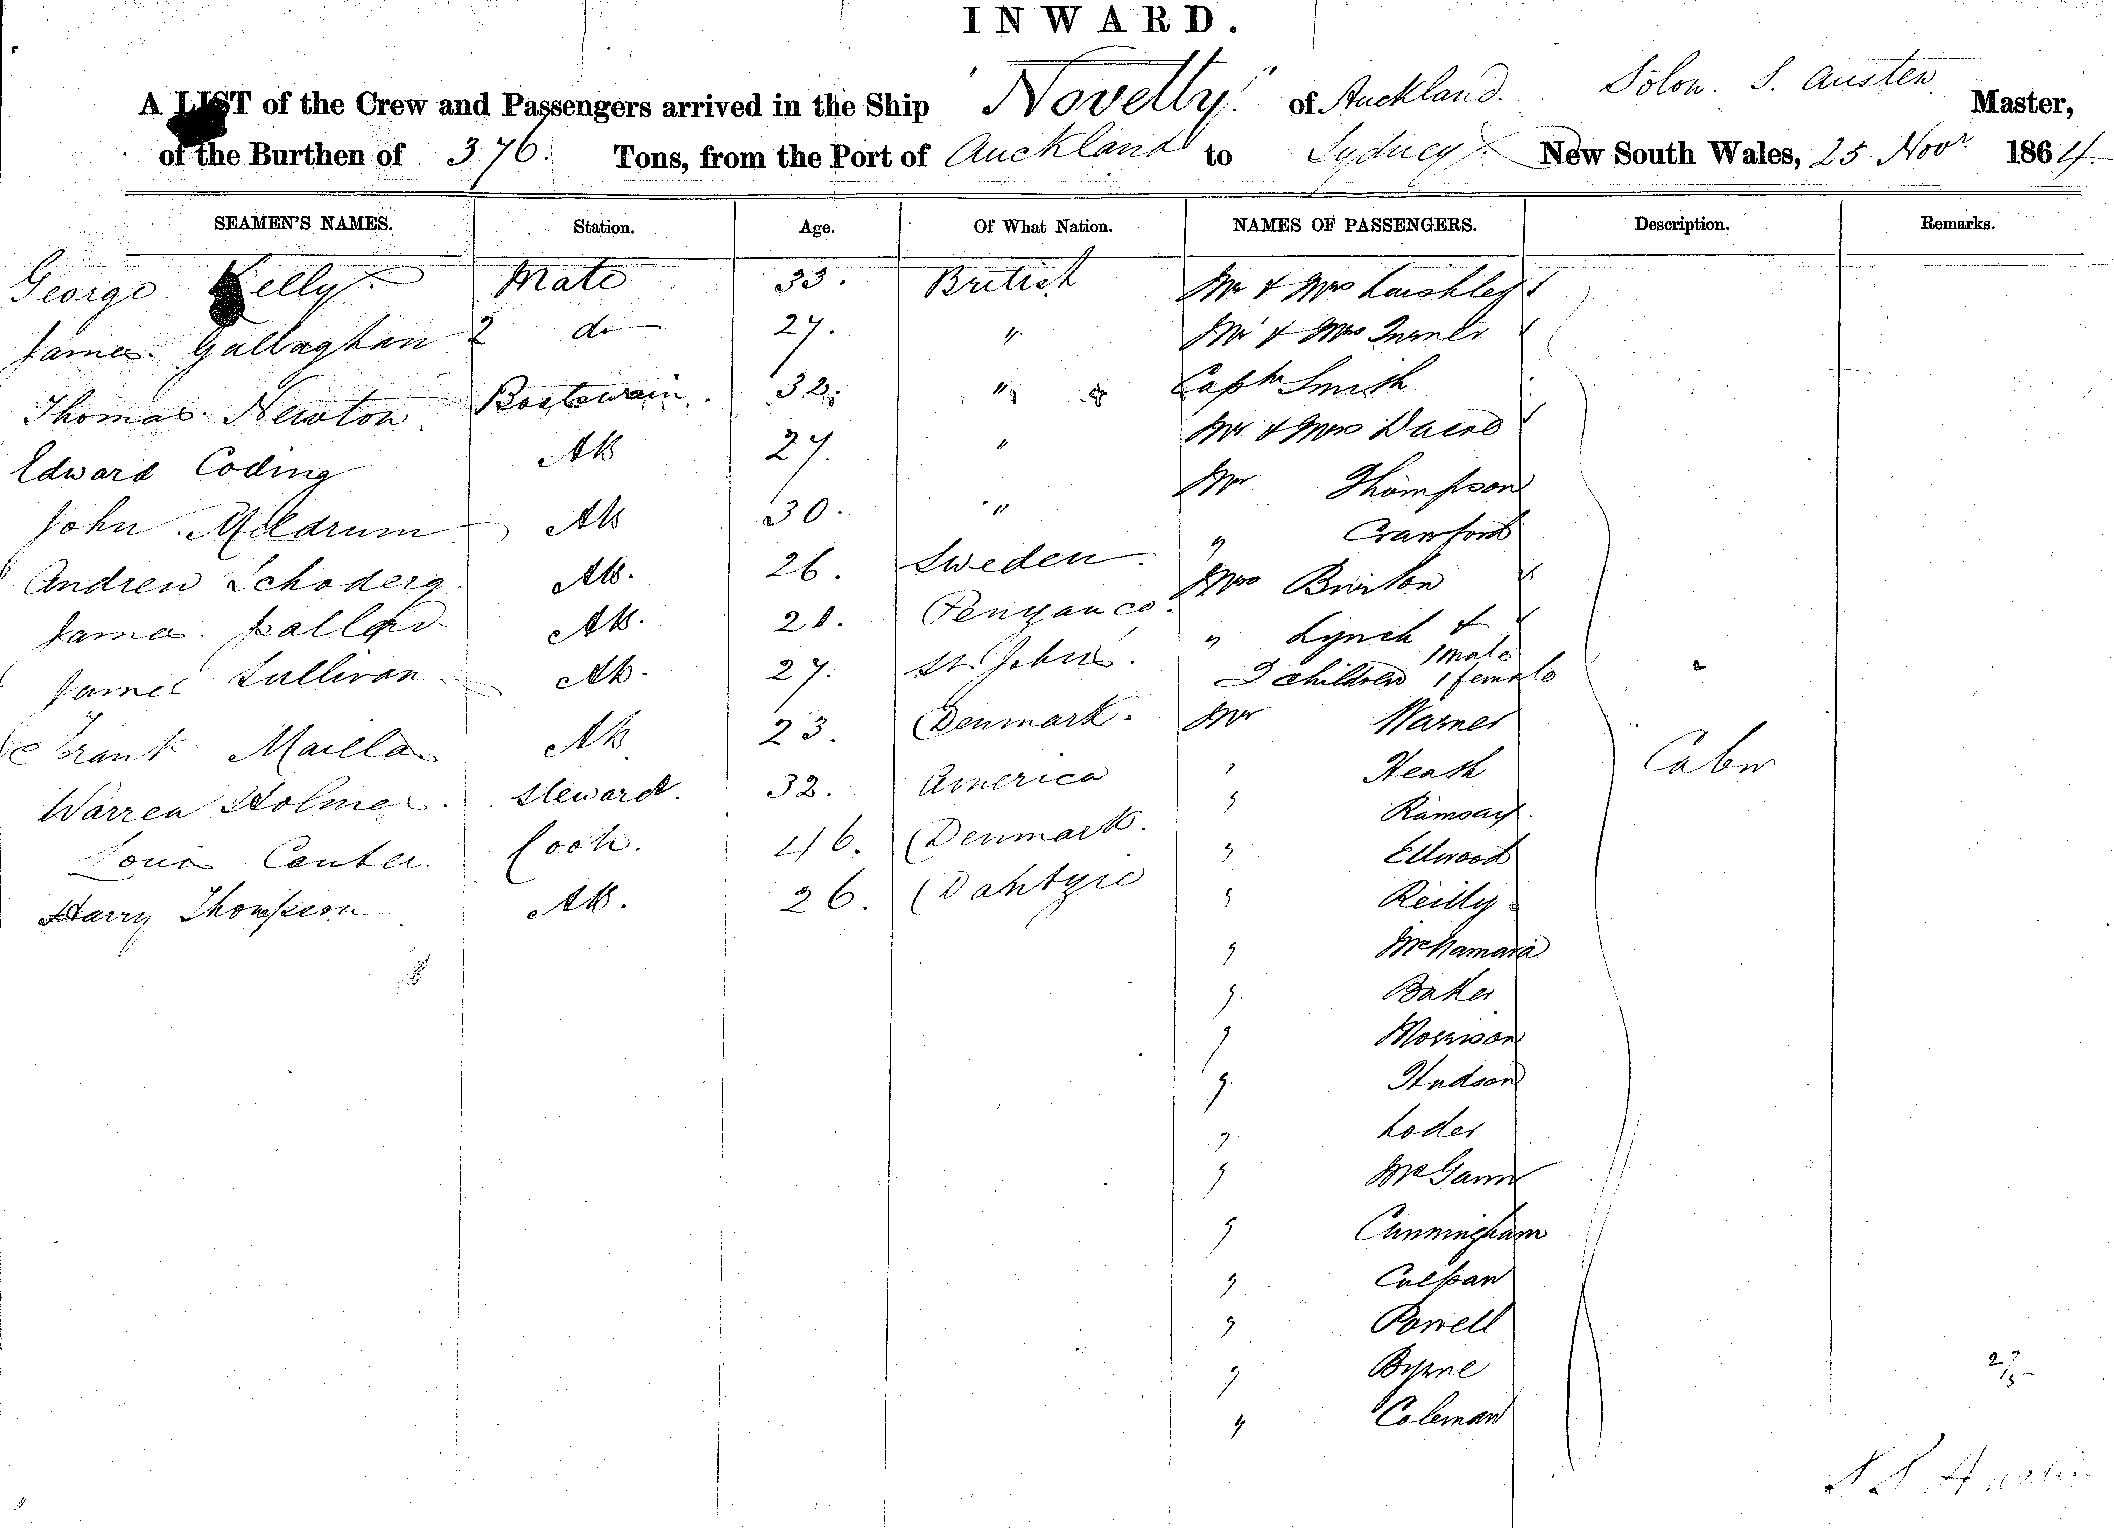 INWARD.
A LIST of the Crew and Passengers arrived in the Ship "Novelty" of Auckland. Solon. S. Austen Master,
of the Burthen of 376. Tons, from the Port of Auckland to Sydney New South Wales, 25 Novr 1864
SEAMEN'S NAMES. Station. Age. Of What Nation. NAMES OF PASSENGERS. Description. Remarks.
George Kelly Mate 33. British Mr & Mrs Laishley
James Gallaghan 2 do 27. " Mr & Mrs Turner
Thomas Newton Boatswain. 32. " Captn Smith
Edward Coding AB 27. " Mr & Mrs
John Meldrum AB 30. " Mr Thompson
" Crawford
Andrew Schoderg AB. 26. Sweden. Mrs Burton
James AB. 21. Penzance. " Lynch &
James Sullivan AB. 27. St Johns. 2 children 1 male 1 female
Frank Mailla AB 23. Denmark. Mr Warner
Warren Holmes. Steward. 32. America " Heath
Cabin
" Ramsay
Louis Center. Cook. 46. Denmark. " Ellwood
Harry Thompson AB. 26. " Reilly
" McNamara
" Baker
" Morrison
" Hudson
" Loder
" McGann
" Cunningham
" Culpan
" Powell
" Byrne
" Coleman
S S Austin